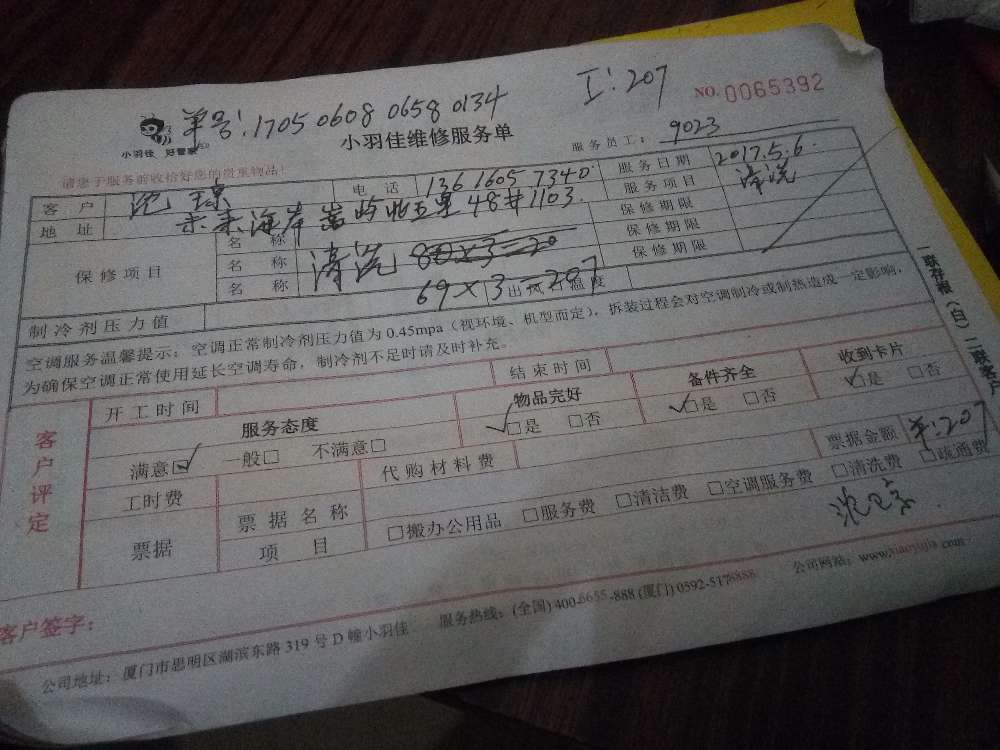 单号:1705 0608 0658 0134 工:207 NO.0065392
小羽佳 好管家
小羽佳维修服务单 服务员工: 9023
请您于服务前收拾好您的贵重物品!
客户 沈琼 电话 136 1605 7340 服务日期 2017.5.6.
地址 未来海岸嵩屿北五里48#1103. 服务项目 清洗
保修项目 名称 保修期限
名称 清洗 保修期限
名称 69×3=207 保修期限
制冷剂压力值 出风口温度
空调服务温馨提示:空调正常制冷剂压力值为0.45mpa(视环境、机型而定),拆装过程会对空调制冷或制热造成一定影响,
为确保空调正常使用延长空调寿命,制冷剂不足时请及时补充。
客户评定
开工时间 结束时间
服务态度 物品完好 备件齐全 收到卡片
满意☑ 一般□ 不满意□ ☑是 □否 ☑是 □否 ☑是 □否
工时费 代购材料费 票据金额 ¥:207
票据 票据名称 项目 □搬办公用品 □服务费 □清洁费 □空调服务费 □清洗费 □疏通费
客户签字:
公司地址:厦门市思明区湖滨东路319号D幢小羽佳 服务热线:(全国)400-6655-888(厦门)0592-5178888 公司网站:www.xiaoyujia.com
一联存根(白)二联客户